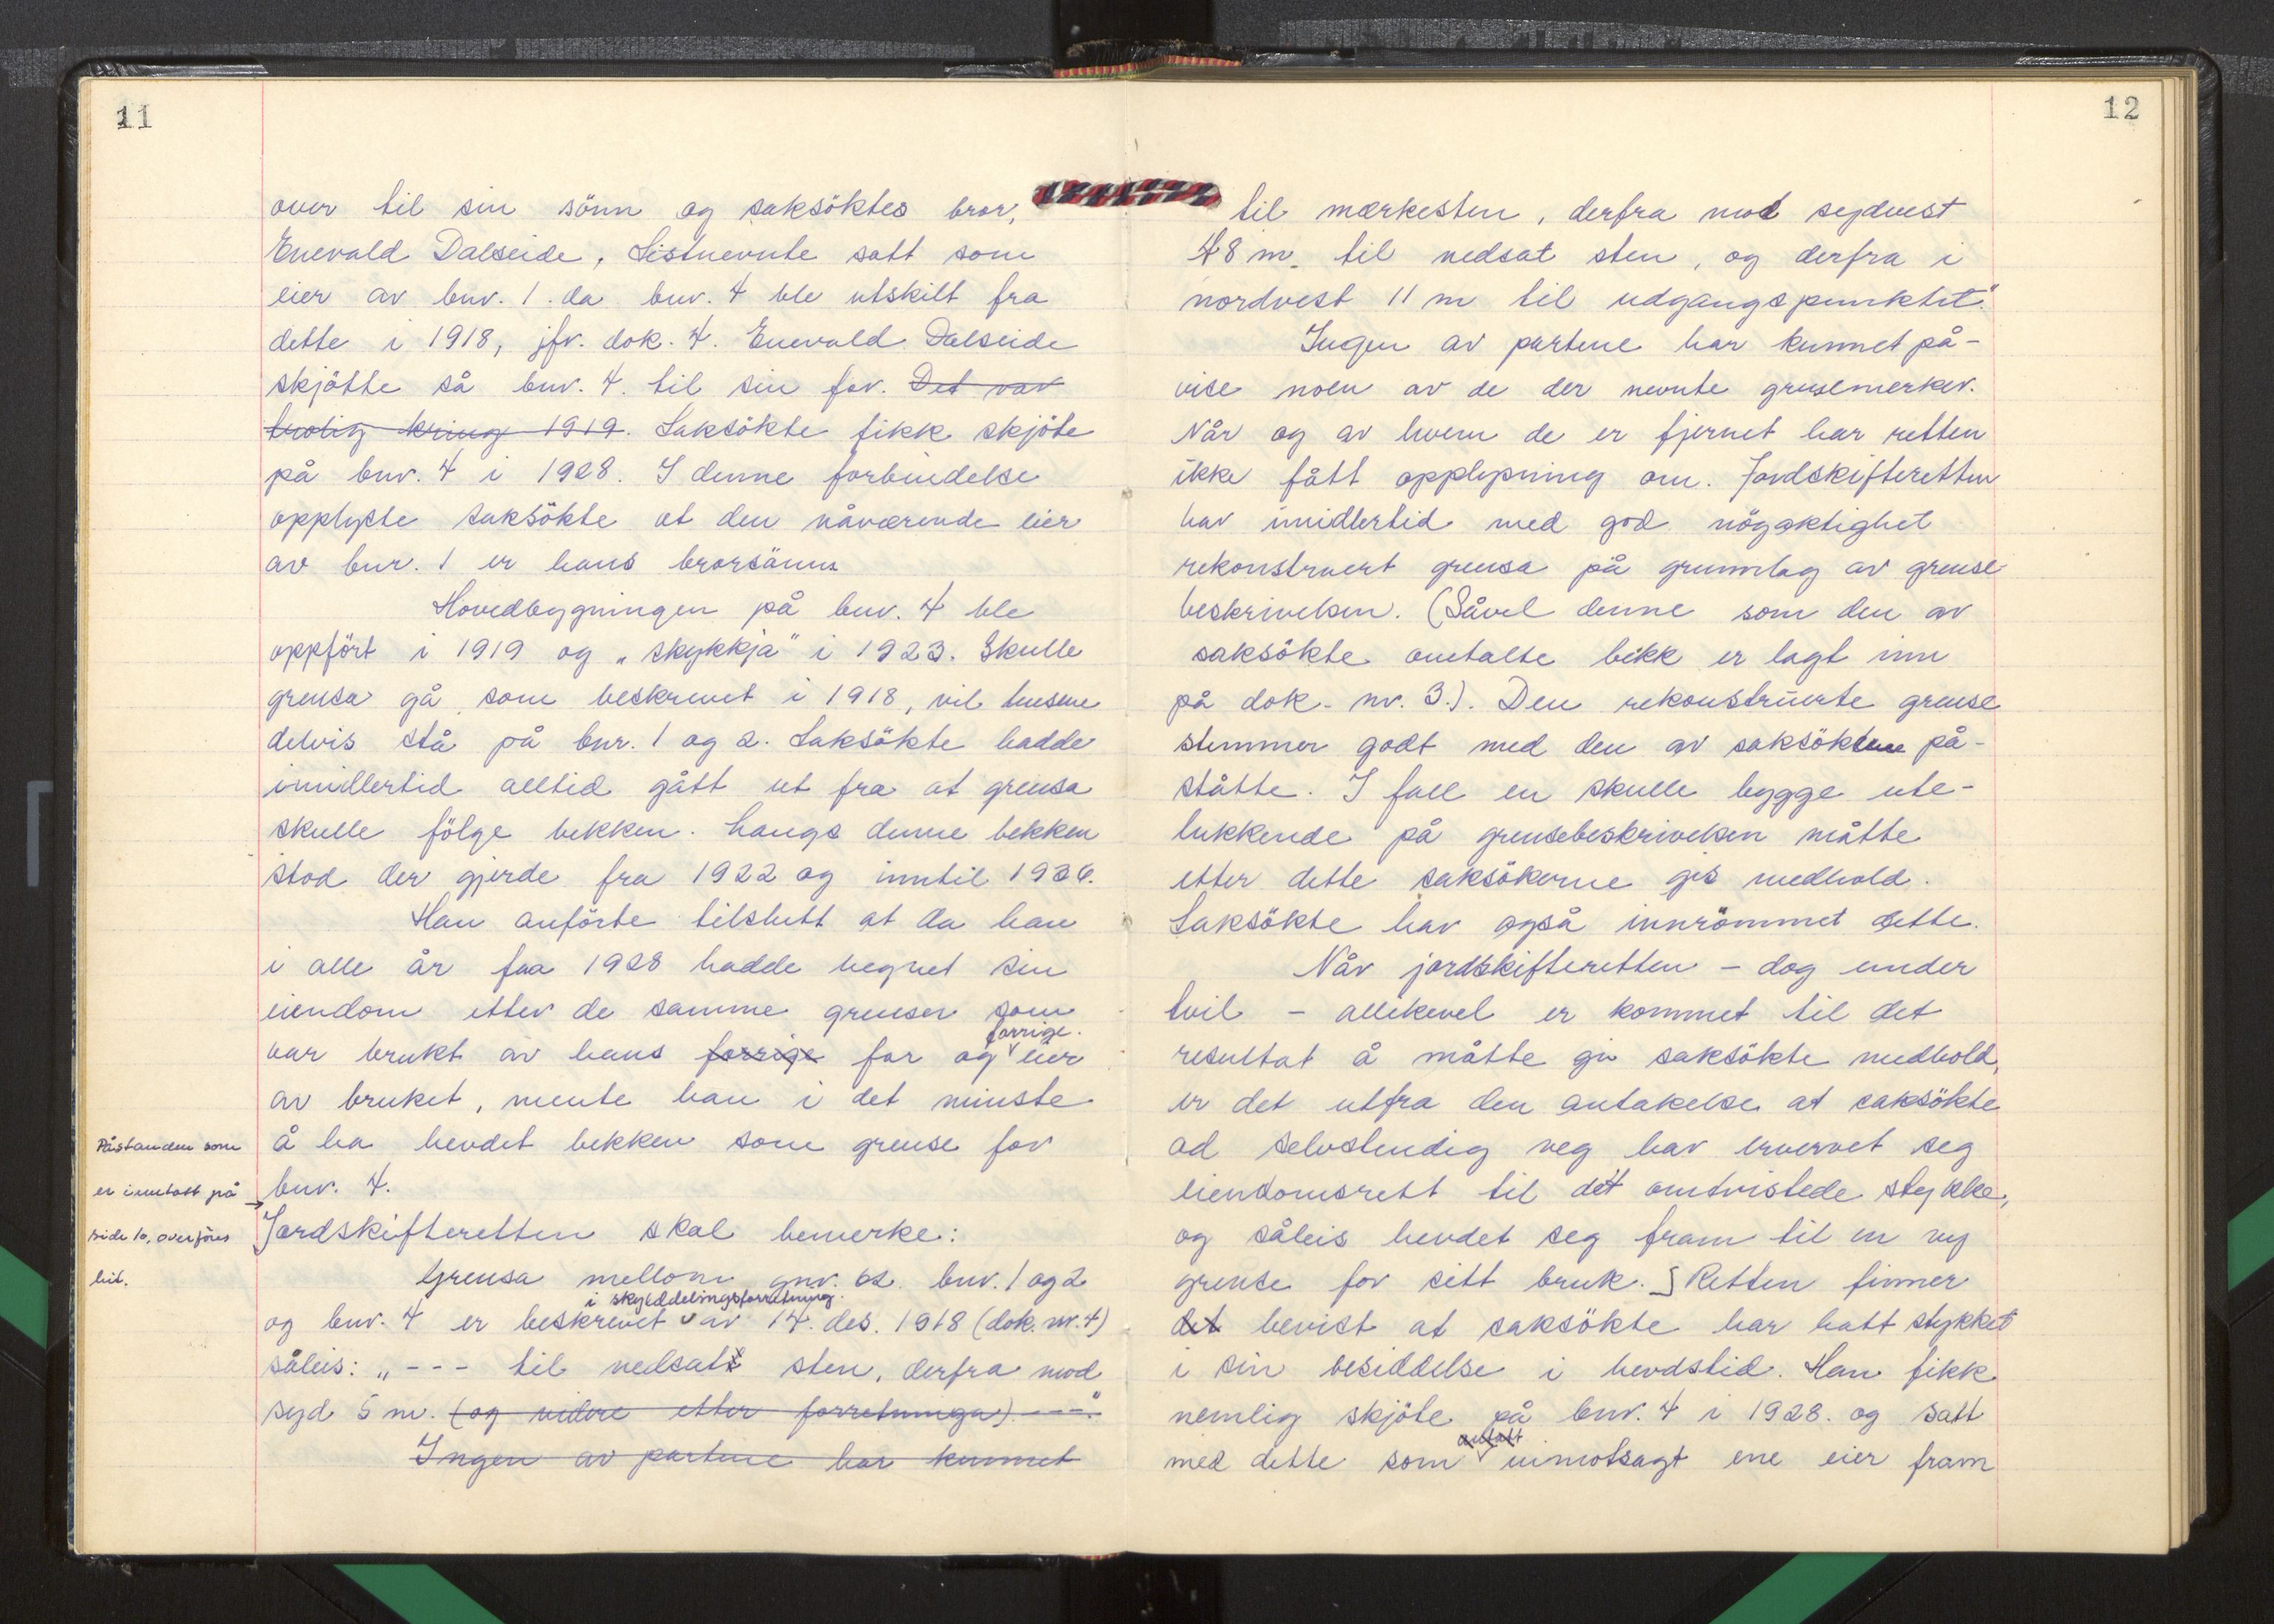 11
over til sin sönn og saksöktes bror,
Enevald Dalseide, Sistnevnte satt som
eier av bnr. 1. da bnr. 4 ble utskilt fra
dette i 1918, jfr. dok. 4. Enevald Dalseide
skjötte så bnr. 4. til sin far. Det var
trolig kring 1919. Saksökte fikk skjöte
på bnr. 4 i 1928. I denne forbindelse
opplyste saksökte at den nåværende eier
av bnr. 1 er hans brorsönn
Hovedbygningen på bnr. 4 ble
oppfört i 1919 og „skykkja" i 1923. Skulle
grensa gå som beskrevet i 1918, vil husene
delvis stå på bnr. 1 og 2. Saksökte hadde
imidlertid alltid gått ut fra at grensa
skulle fölge bekken. Langs denne bekken
stod der gjerde fra 1922 og inntil 1936.
Han anförte tilslutt at da han
i alle år fra 1928 hadde hegnet sin
eiendom etter de samme grenser som
forrige.
var brukt av hans forrige far og eier
av bruket, mente han i det minste
å ha hevdet bekken som grense for
bnr. 4.
Påstanden som
er inntatt på
side 10, overföres
hit.
Jordskifteretten skal bemerke:
Grensa mellom gnr. 62. bnr. 1 og 2
i skylddelingsforretning.
og bnr. 4 er beskrevet av 14. des. 1918 (dok. nr. 4)
såleis: „--- til nedsatt sten, derfra mod
syd 5 m. (og videre etter forretninga) ---"
Ingen av partene har kunnet
12
til mærkesten, derfra mod sydvest
48 m. til nedsat sten, og derfra i
nordvest 11 m til udgangspunktet."
Ingen av partene har kunnet på-
vise noen av de der nevnte grensemerker.
Når og av hvem de er fjernet har retten
ikke fått opplysning om. Jordskifteretten
har imidlertid med god nögaktighet
rekonstruert grensa på grunnlag av grense
beskrivelsen. (Såvel denne som den av
saksökte omtalte bekk er lagt inn
på dok. nr. 3.). Den rekonstruerte grense
stemmer godt med den av saksökerne på-
ståtte. I fall en skulle bygge ute-
lukkende på grensebeskrivelsen måtte
etter dette saksökerne gis medhold.
Saksökte har også innrömmet dette.
Når jordskifteretten - dog under
tvil - allikevel er kommet til det
resultat å måtte gi saksökte medhold,
er det utfra den antakelse at saksökte
ad selvstendig veg har ervervet seg
eiendomsrett til det omtvistede stykke,
og såleis hevdet seg fram til en ny
grense for sitt bruk. Retten finner
det bevist at saksökte har hatt stykket
i sin besiddelse i hevdstid. Han fikk
nemlig skjöte på bnr. 4 i 1928. og satt
antatt
med dette som uimotsagt ene eier fram